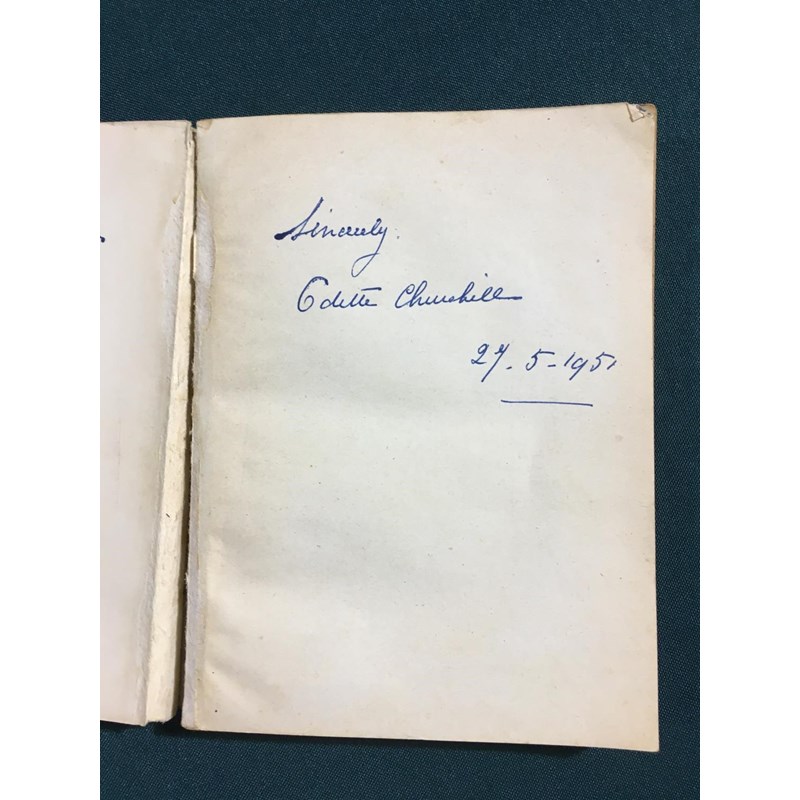 Sincerely.
Odette Churchill
27-5-1951